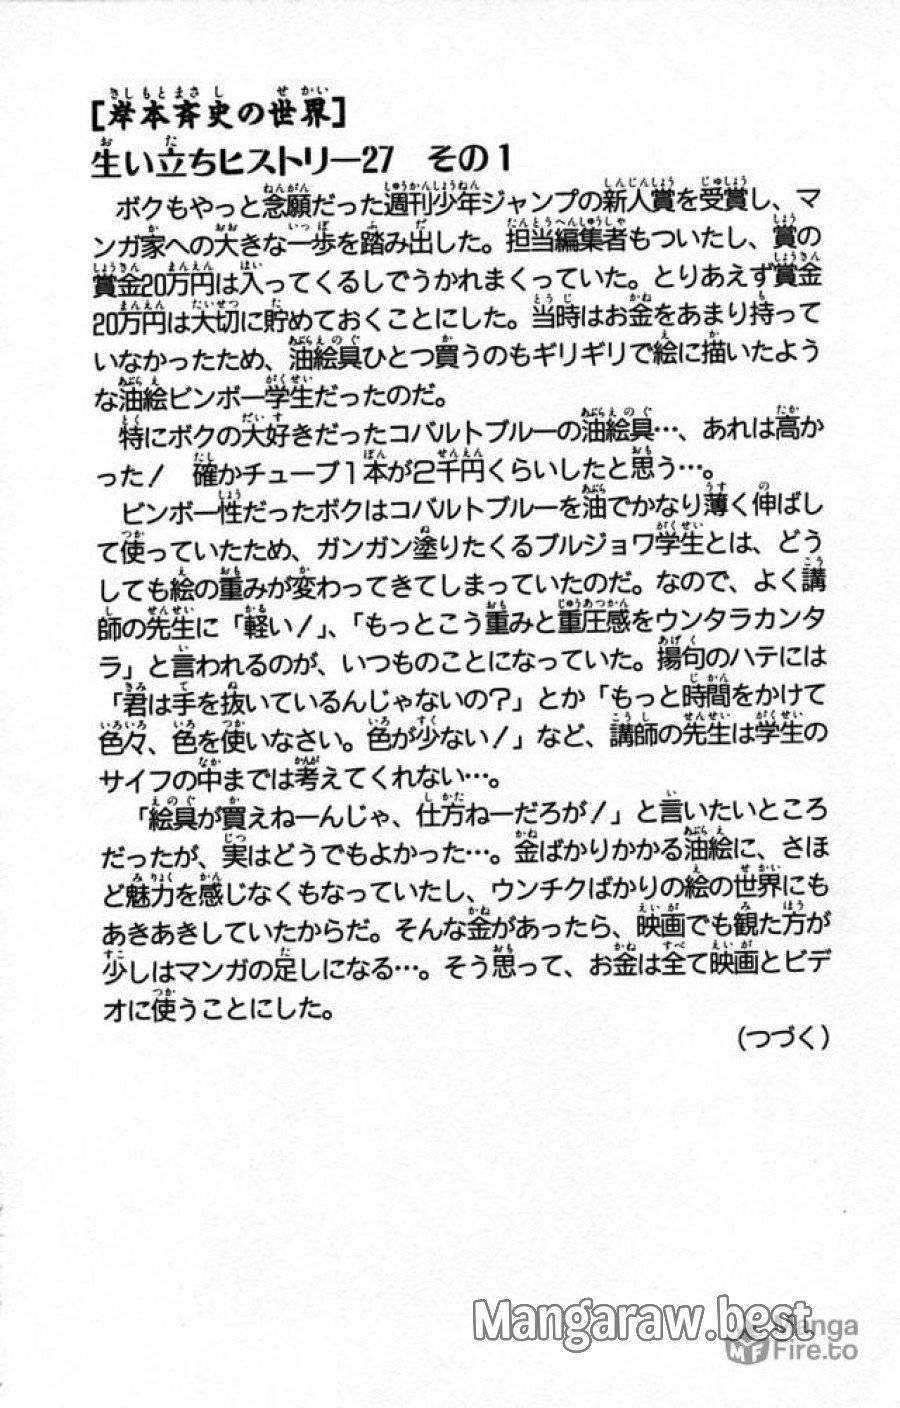 [岸本斉史の世界]
生い立ちヒストリー27　その1
ボクもやっと念願だった週刊少年ジャンプの新人賞を受賞し、マ
ンガ家への大きな一歩を踏み出した。担当編集者もついたし、賞の
賞金20万円は入ってくるしでうかれまくっていた。とりあえず賞金
20万円は大切に貯めておくことにした。当時はお金をあまり持って
いなかったため、油絵具ひとつ買うのもギリギリで絵に描いたよう
な油絵ビンボー学生だったのだ。
特にボクの大好きだったコバルトブルーの油絵具…、あれは高か
った！　確かチューブ1本が2千円くらいしたと思う…。
ビンボー性だったボクはコバルトブルーを油でかなり薄く伸ばし
て使っていたため、ガンガン塗りたくるブルジョワ学生とは、どう
しても絵の重みが変わってきてしまっていたのだ。なので、よく講
師の先生に「軽い！」、「もっとこう重みと重圧感をウンタラカンタ
ラ」と言われるのが、いつものことになっていた。揚句のハテには
「君は手を抜いているんじゃないの？」とか「もっと時間をかけて
色々、色を使いなさい。色が少ない！」など、講師の先生は学生の
サイフの中までは考えてくれない…。
「絵具が買えねーんじゃ、仕方ねーだろが！」と言いたいところ
だったが、実はどうでもよかった…。金ばかりかかる油絵に、さほ
ど魅力を感じなくもなっていたし、ウンチクばかりの絵の世界にも
あきあきしていたからだ。そんな金があったら、映画でも観た方が
少しはマンガの足しになる…。そう思って、お金は全て映画とビデ
オに使うことにした。
（つづく）
Mangaraw.best
Manga
MF Fire.to